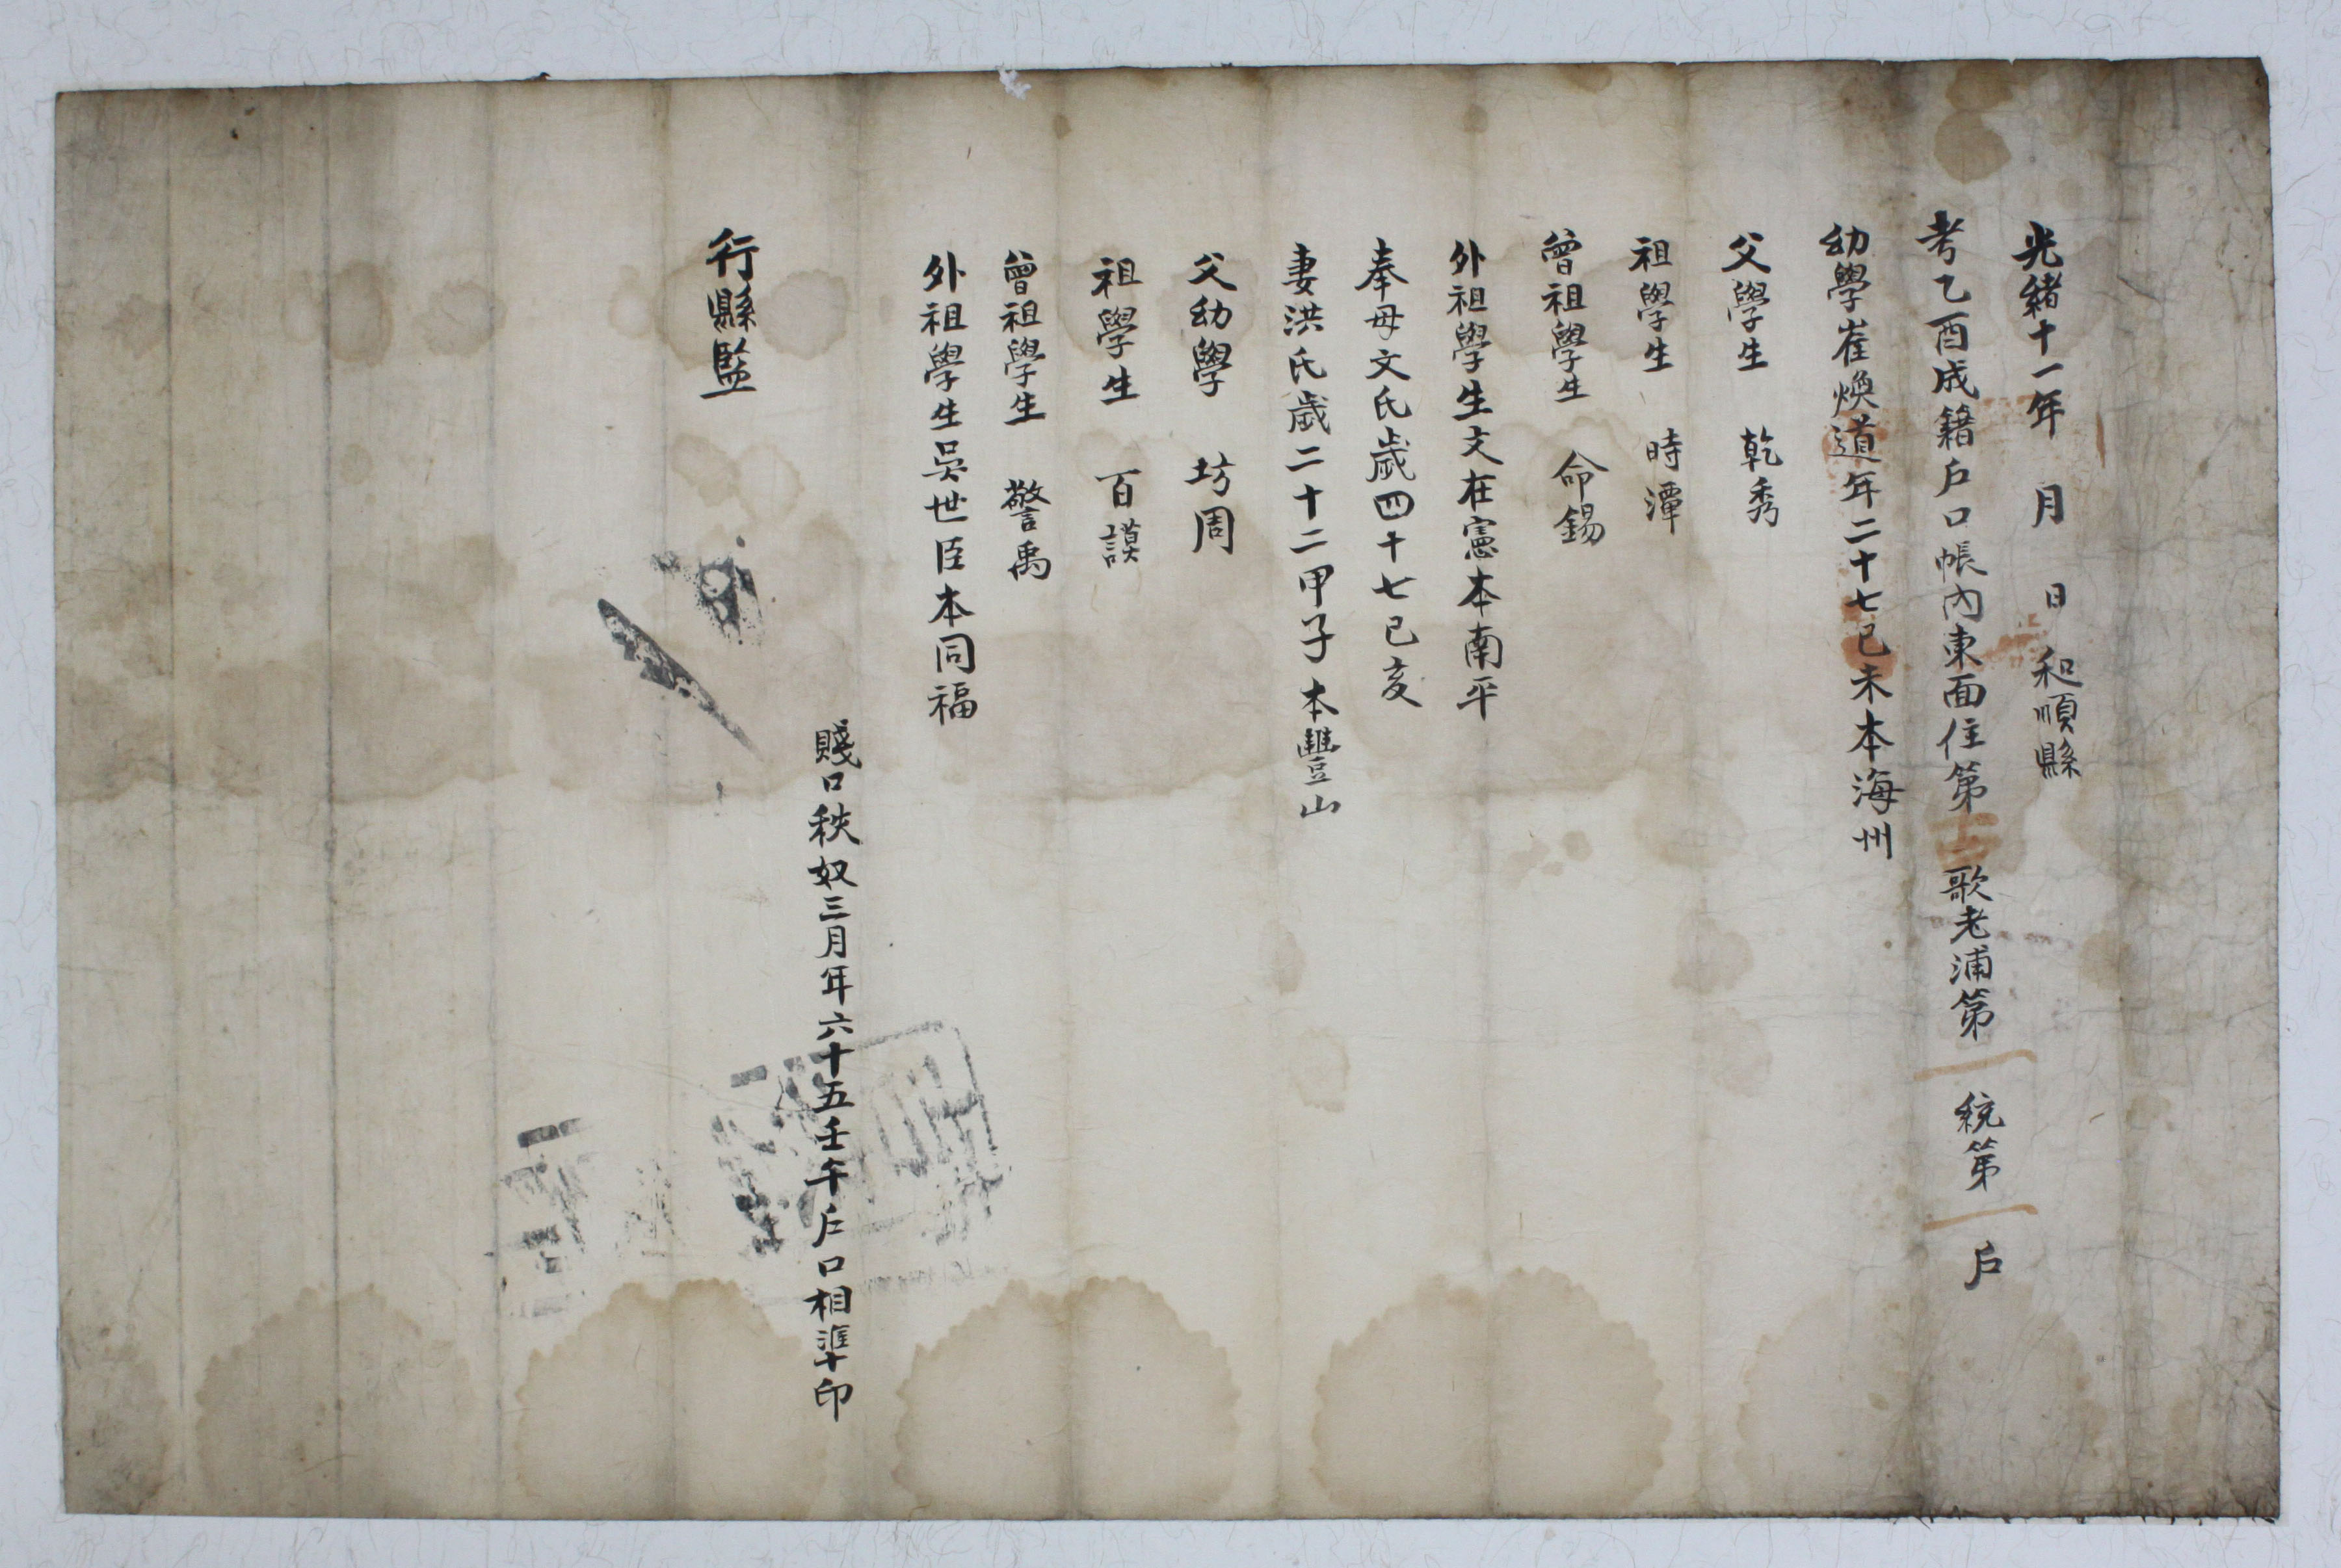 光緒十一年 月 日 和順縣
考乙酉成籍戶口帳內東面住第 歌老浦第一統第一戶
幼學崔煥道年二十七己未本海州
父學生 乾秀
祖學生 時潭
曾祖學生 命錫
外祖學生文在憲本南平
奉母文氏歲四十七己亥
妻洪氏歲二十二甲子本豐山
父幼學 坊周
祖學生 百謨
曾祖學生 警禹
外祖學生吳世臣本同福
賤口秩奴三月年六十五壬午戶口相準印
行縣監